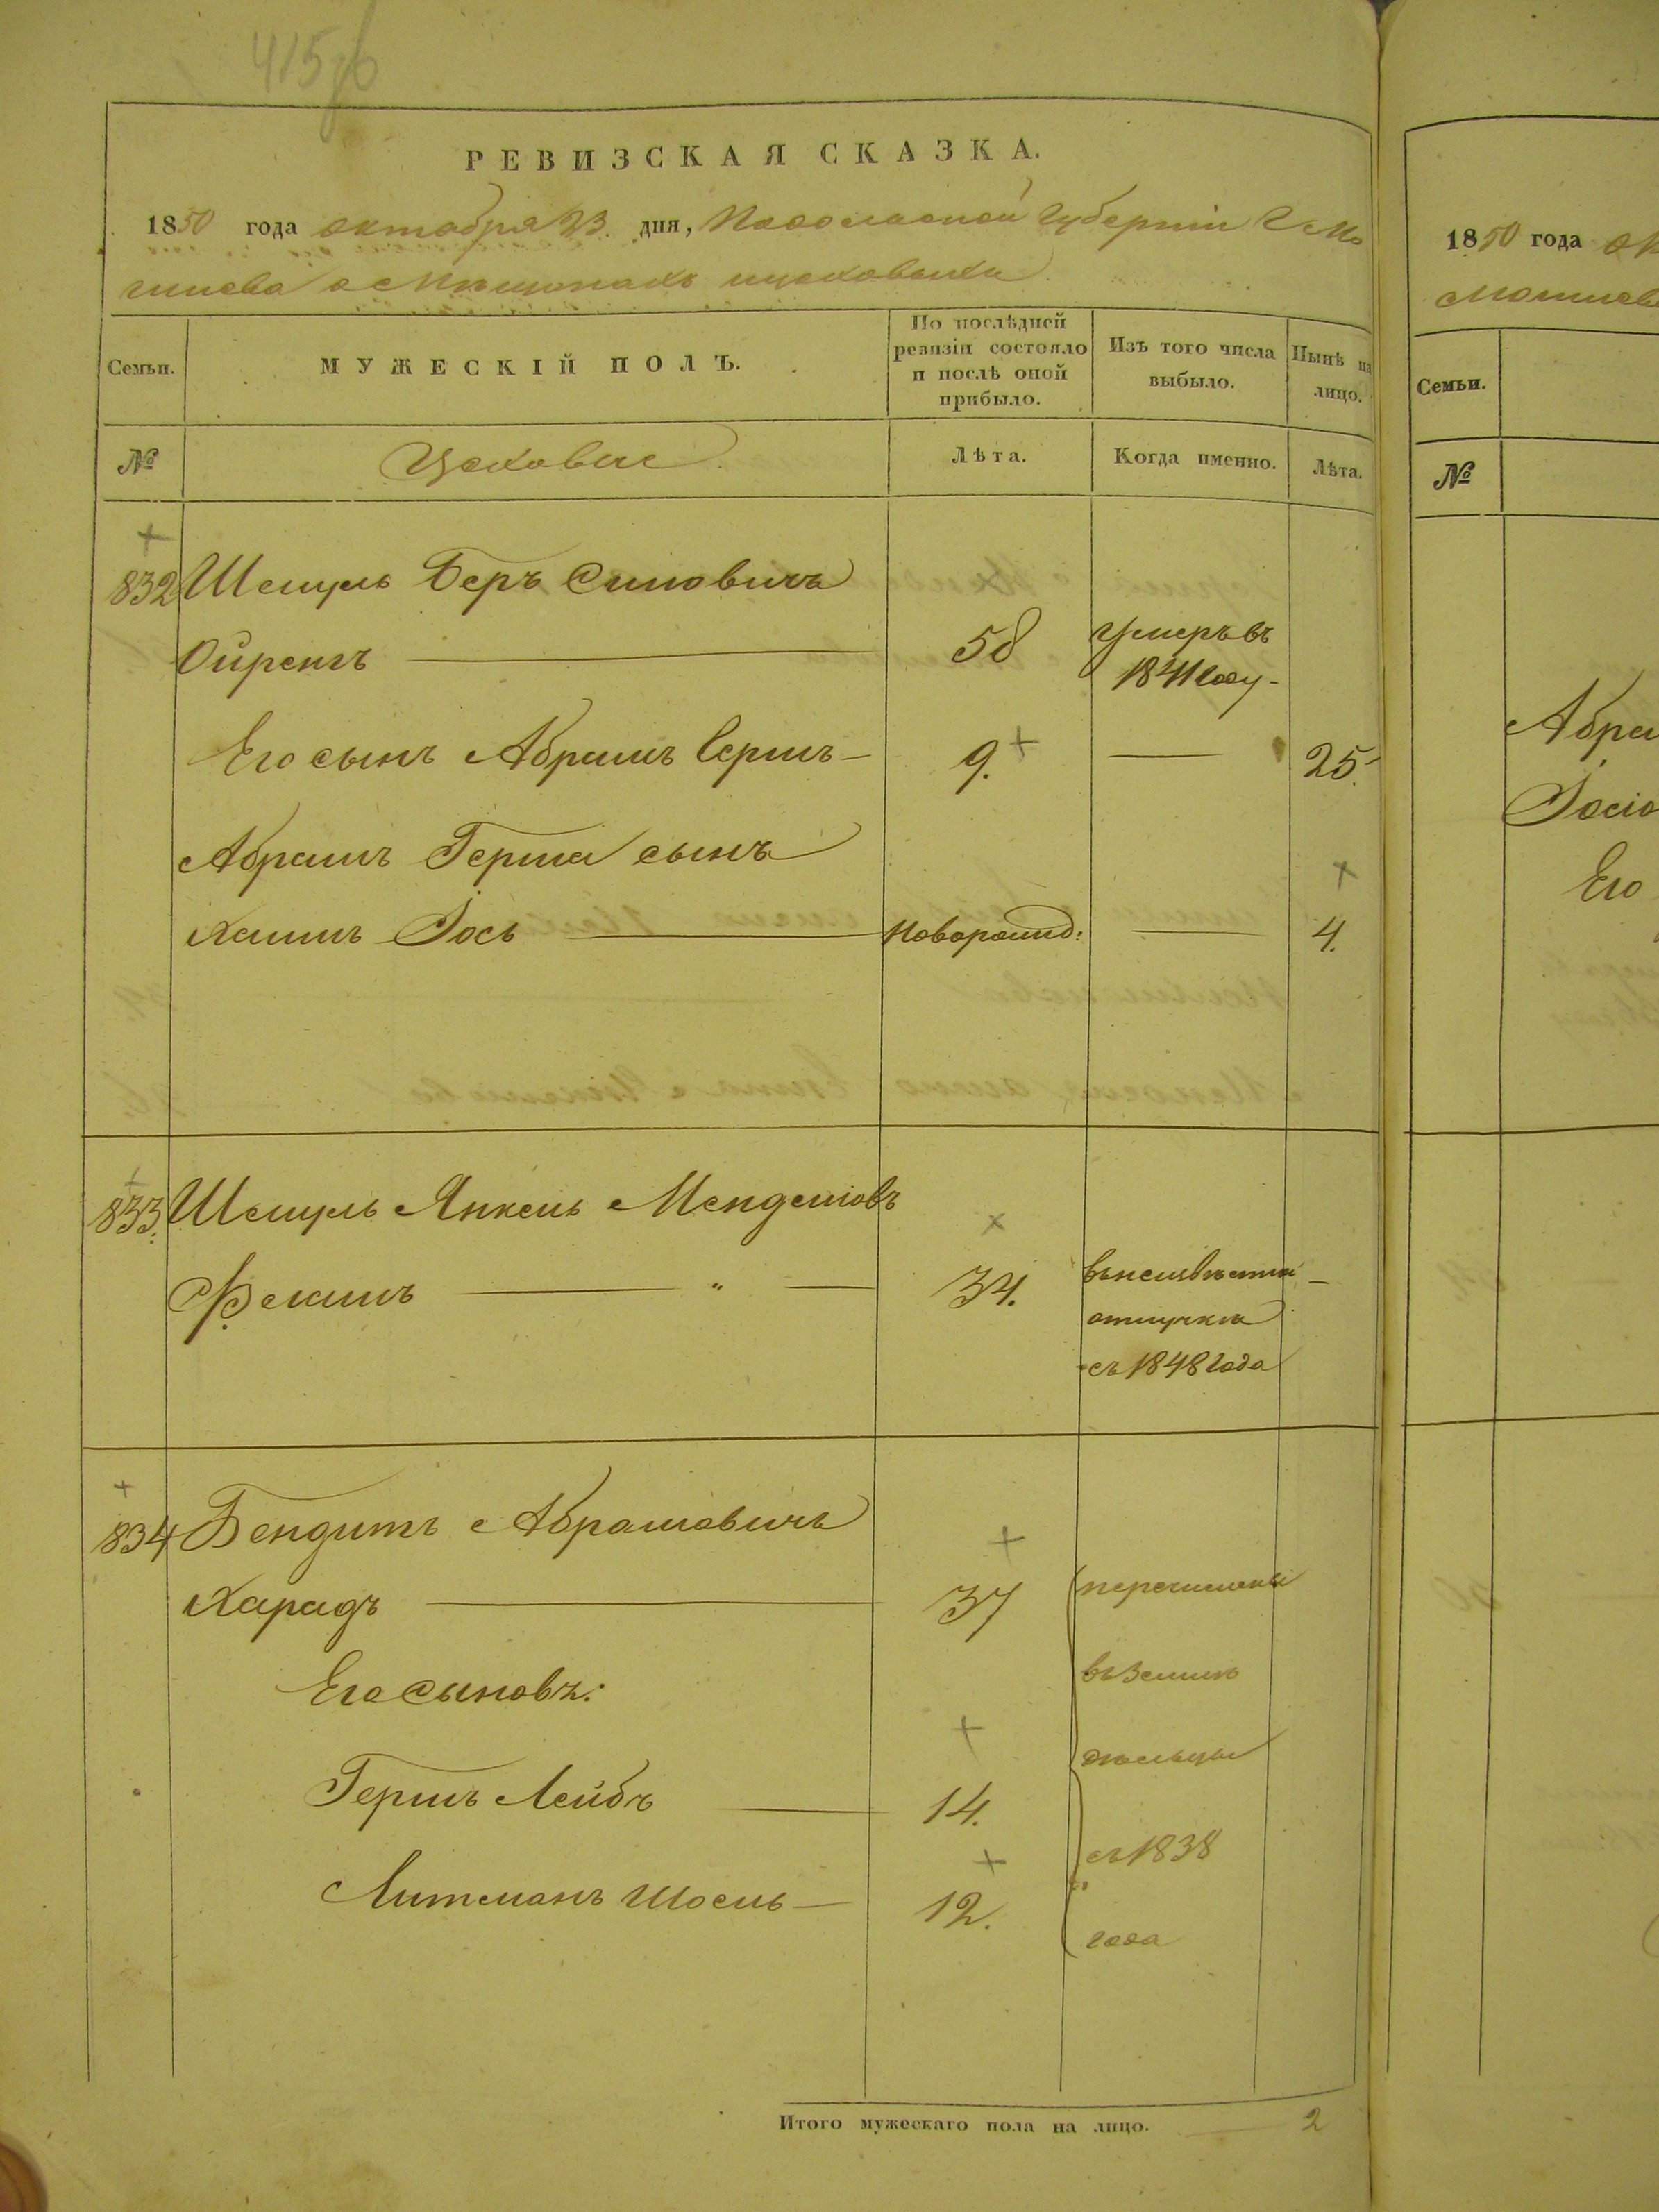 415об
РЕВИЗСКАЯ СКАЗКА.
1850 года октября 23 дня, Подольской Губерніи Г Мо
гилева о Мѣщанахъ цеховыхъ
Семьи.
МУЖЕСКІЙ ПОЛЪ.
По послѣдней
ревизіи состояло
и послѣ оной
прибыло.
Изъ того числа
выбыло.
Нынѣ на
лицо.
№
Цеховые
Лѣта.
Когда именно.
Лѣта.
832 Шмуль Беръ
Ойренгъ 58 Умеръ въ
1841 году
Его сынъ Абрамъ Гершъ 9. 25.
Абрамъ Герша сынъ
Хаимъ Іось новорожд: 4.
833. Шмуль Янкель Менделіовъ
34. въ неизвѣстной
отлучкѣ
съ 1848 года
834 Бендитъ Абрамовичъ
Харадъ 37 перечислены
Его сыновъ: въ Земле
дѣльцы
Гершъ Лейбъ 14.
съ 1838
Литманъ Шоель 12.
года
Итого мужескаго пола на лицо. 2
1850 года ок
Могилев
Семьи.
№
Абра
Іосіо
Его